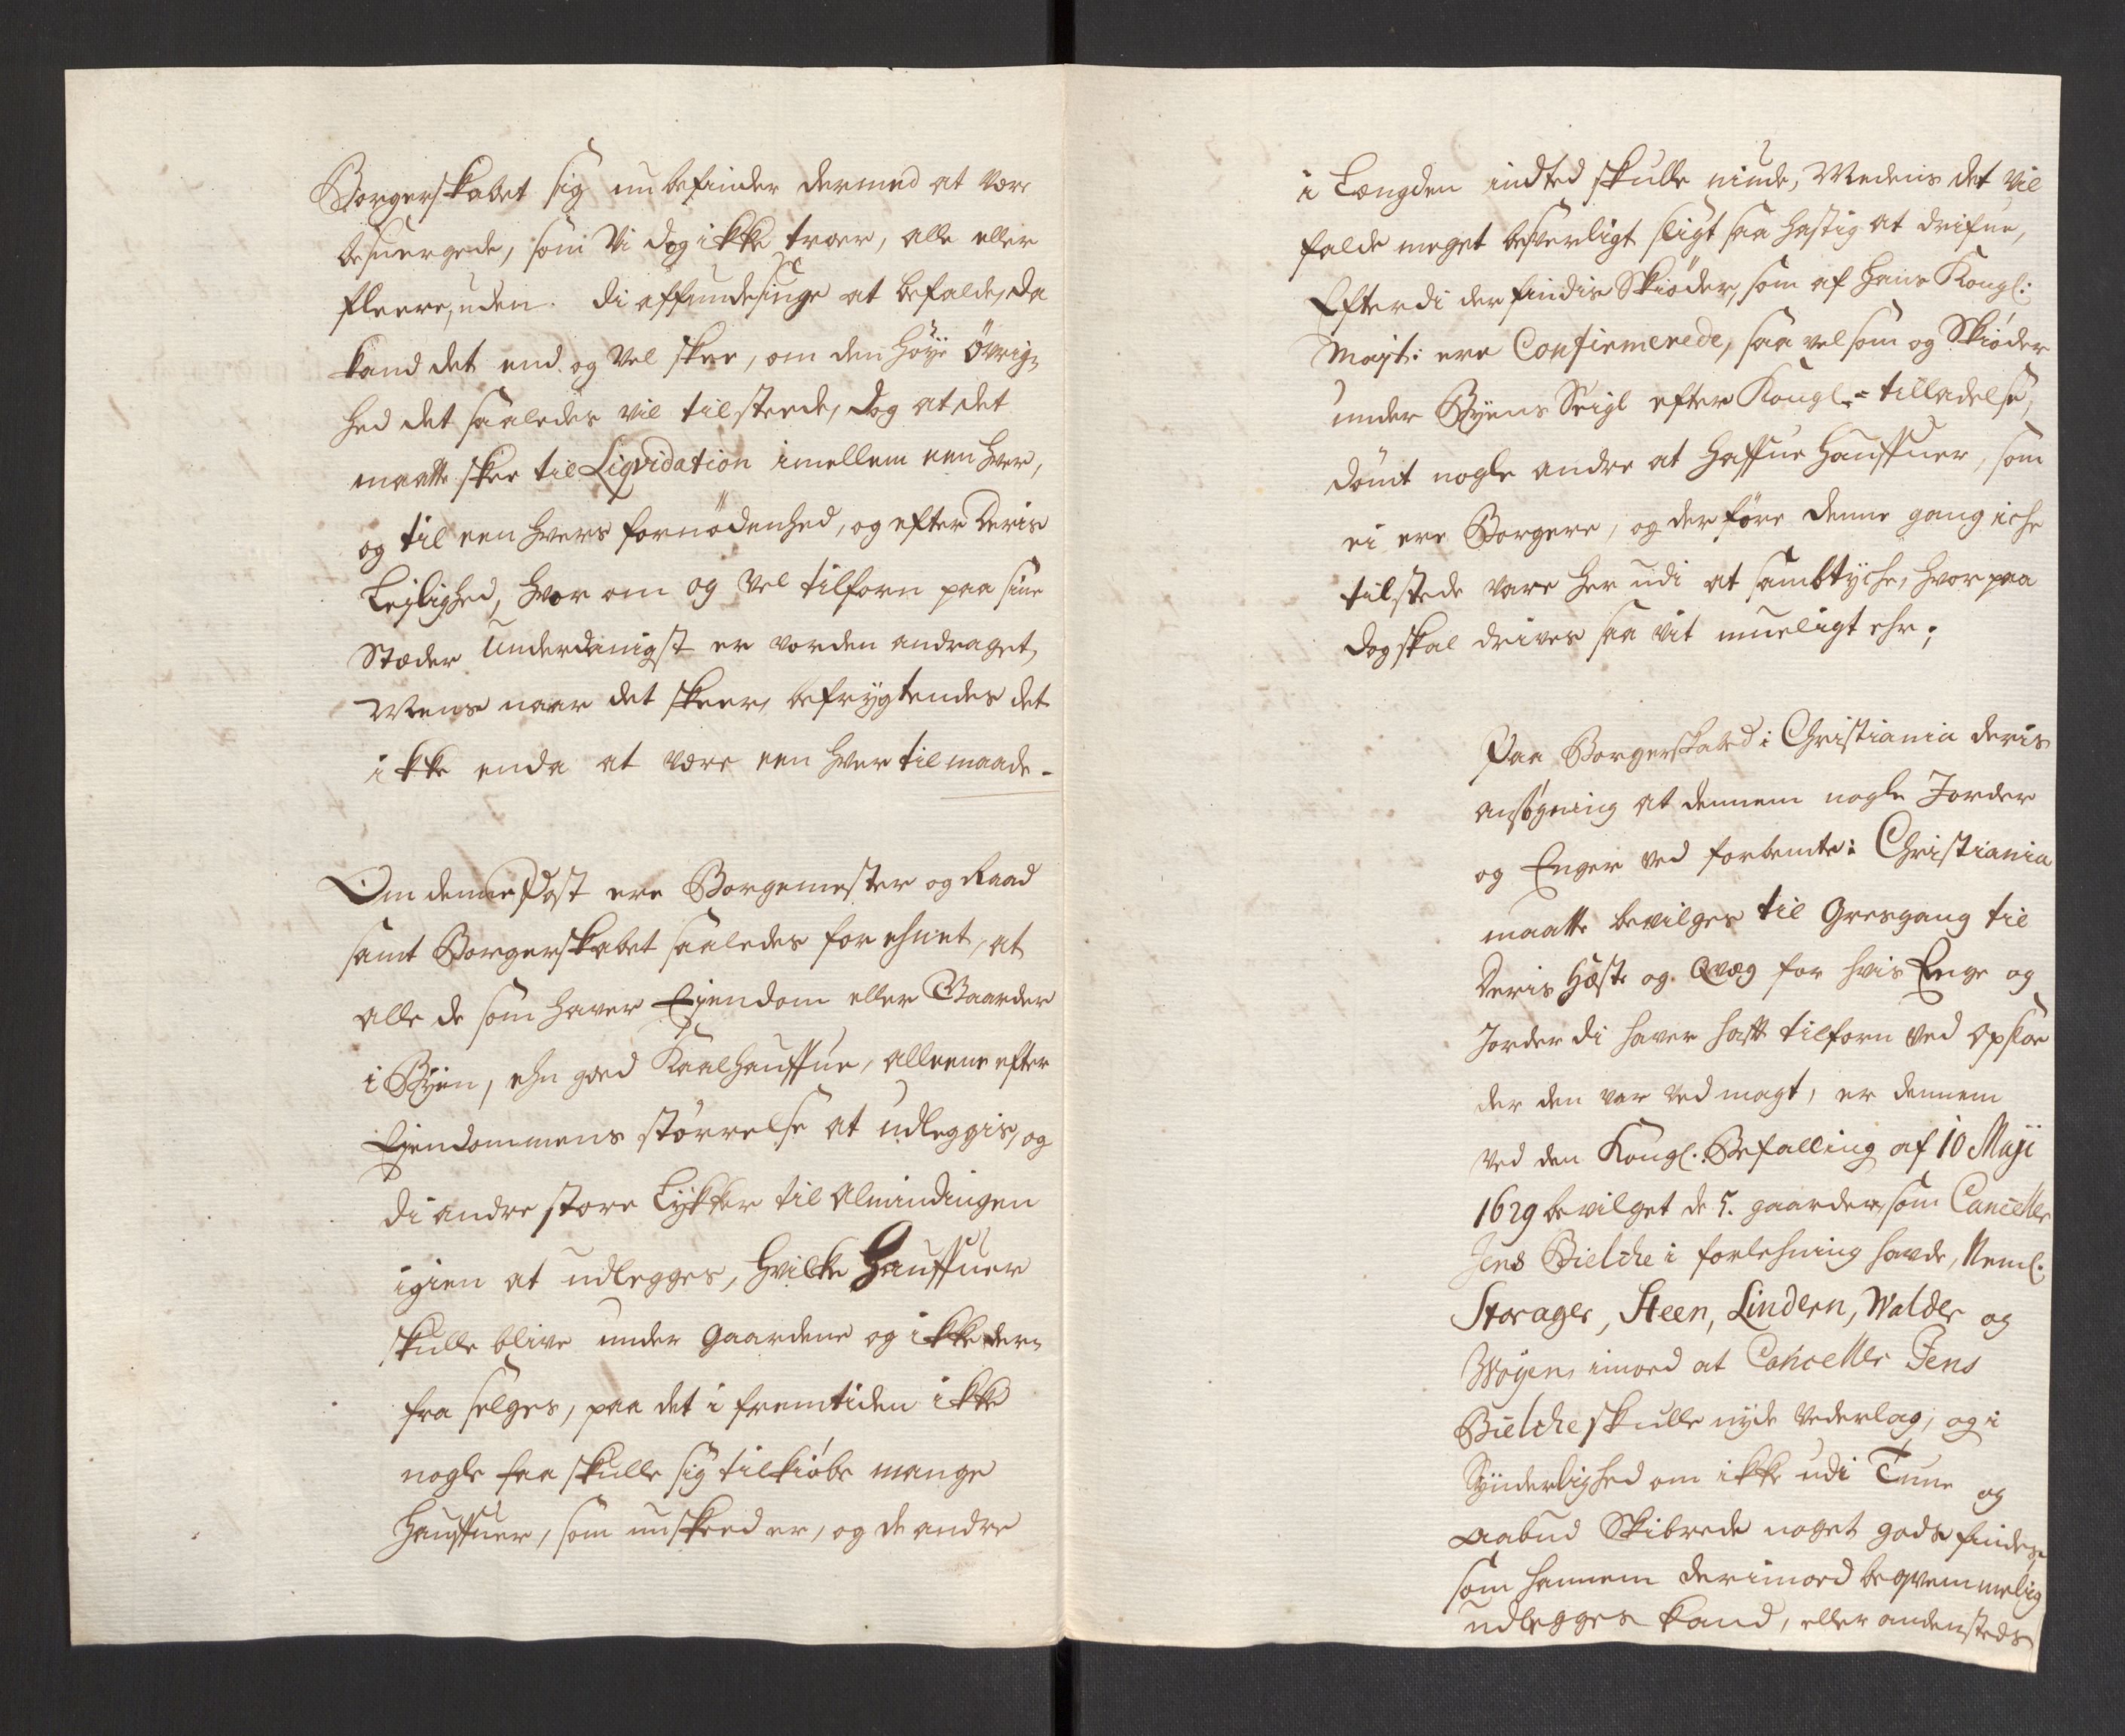 Borgerskabet sig nu befinder dermed at være
besuergede, som Vi dog ikke troer, alle eller
fleere, uden di affundsiuge at befalde, da
kand det end og vel skee, om den høÿe øvrig-
hed det saaledes vil tilsteede, dog at det
maatte skee til Liqvidation imellem een hver,
og til een hvers fornødenhed, og efter Deris
Lejlighed, hvor om og vel tilforn paa sine
Stæder Underdanigst er vorden andraget,
Mens naar det skeer, befrÿgtendes det
ikke enda at være een hver til maade.
Om denne Post ere Borgemester og Raad
samt Borgerskabet saaledes for ehnet, at
alle de som haver Ejendom eller Gaarder
i Bÿen, ehn goed Kaalhauffue, alleene efter
Ejendommens størrelse at udleggis, og
di andre store Lÿkker til Almindingen
igien at udlegges, hvilke Hauffuer
skulle blive under gaardene og ikke der-
fra selges, paa det i fremtiden ikke
nogle faa skulle sig tilkiøbe mange
Hauffuer, som nu skeed er, og de andre
i Længden indted skulle niude, Medens det vil
falde meget besværligt sligt saa hastig at drifue,
Efterdi der findis Skiøder, som af Hans Kongl:
Mayt: ere Confirmerede, saa vel som og Skiøder
under Bÿens Seigl efter Kongl. tilladelse,
dømt nogle andre at haffue Hauffuer, som
ei ere Borgere, og derføre denne gang iche
tilstede vare her udi at sambtÿche, hvor paa
dog skal drives saa vit mueligt ehr;
Paa Borgerskabed i Christiania deris
ansøgning at dennem nogle Jorder
og Enger ved forbemte: Christiania
maatte bevilges til Gresgang til
Deris Hæste og Qvæg for hvis Enge og
Jorder di haver hafft tilforn ved Opsloe
der den var ved magt, er dennem
ved den Kongl. Befalling af 10 Maji
1629 bevilget de 5. gaarder, som Canceller
Jens Bielche i forlehning havde, Neml.
Storager, Steen, Lindern, Walder og
Wøyen, imoed at Canceller Jens
Bielche skulle nÿde vederlag, og i
Sÿnderlighed om ikke udi Tune og
Aabud Skibrede noget gods findes,
som hannem derimoed beqvemmelig
udlegges kand, eller andensteds